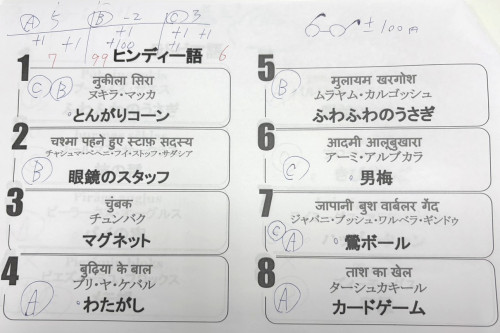 Ⓐ 5 Ⓑ -2 Ⓒ 3
+1 +1 +1 +1
+1 +1 +100 +1 +1
7 99 6
±100m
ヒンディー語
1
ⒸⒷ
नुकीला सिरा
ヌキラ・マッカ
とんがりコーン
2
चश्मा पहने हुए स्टाफ़ सदस्य
チャシュマ・ペヘニ・フイ・ストッフ・サダシア
Ⓑ
眼鏡のスタッフ
3
चुंबक
チュンバク
マグネット
4
बुढ़िया के बाल
ブリ・ヤ・ケバル
Ⓐ
わたがし
5
Ⓑ
मुलायम खरगोश
ムラヤム・カルゴッシュ
ふわふわのうさぎ
6
आदमी आलूबुखारा
アーミ・アルブカラ
Ⓒ
男梅
7
जापानी बुश वार्बलर गेंद
ジャパニ・ブッシュ・ワルベラ・ギンドゥ
ⒸⒶ
鶯ボール
8
ताश का खेल
ターシュカキール
Ⓐ
カードゲーム